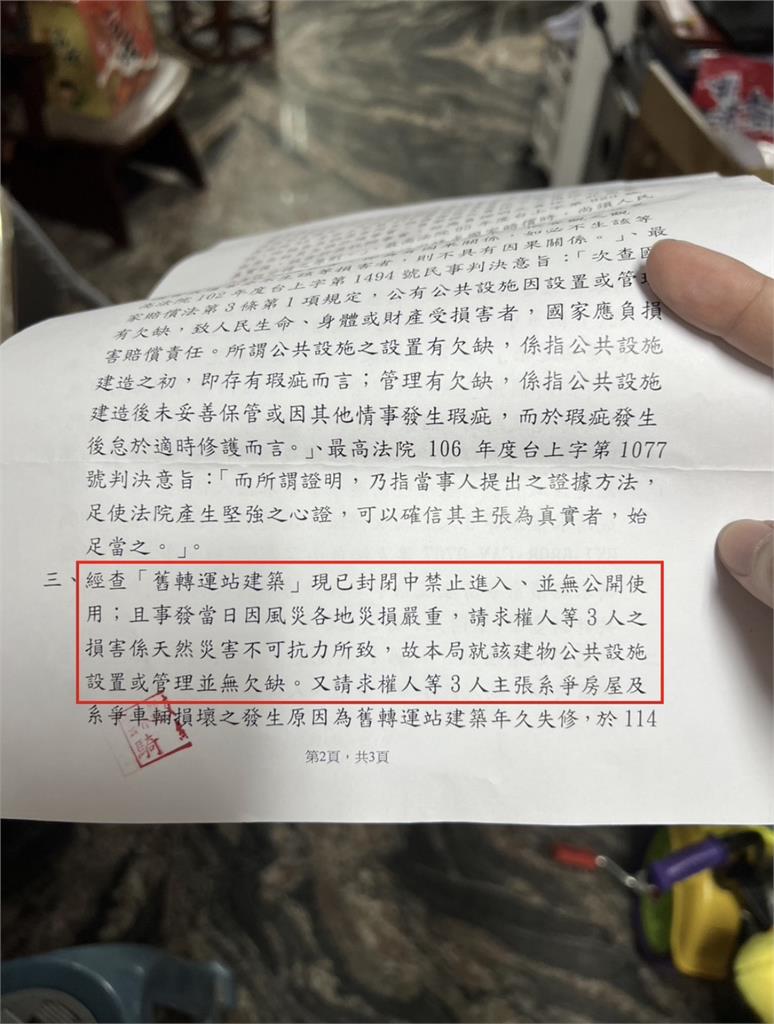 害者，則不具有因果關係。」、最
高法院102年度台上字第1494號民事判決意旨：「次查國
家賠償法第3條第1項規定，公有公共設施因設置或管理
有欠缺，致人民生命、身體或財產受損害者，國家應負損
害賠償責任。所謂公共設施之設置有欠缺，係指公共設施
建造之初，即存有瑕疵而言；管理有欠缺，係指公共設施
建造後未妥善保管或因其他情事發生瑕疵，而於瑕疵發生
後怠於適時修護而言。」、最高法院 106 年度台上字第1077
號判決意旨：「而所謂證明，乃指當事人提出之證據方法，
足使法院產生堅強之心證，可以確信其主張為真實者，始
足當之。」。
三、經查「舊轉運站建築」現已封閉中禁止進入、並無公開使
用；且事發當日因風災各地災損嚴重，請求權人等3人之
損害係天然災害不可抗力所致，故本局就該建物公共設施
設置或管理並無欠缺。又請求權人等3人主張系爭房屋及
系爭車輛損壞之發生原因為舊轉運站建築年久失修，於114
騎
第2頁，共3頁